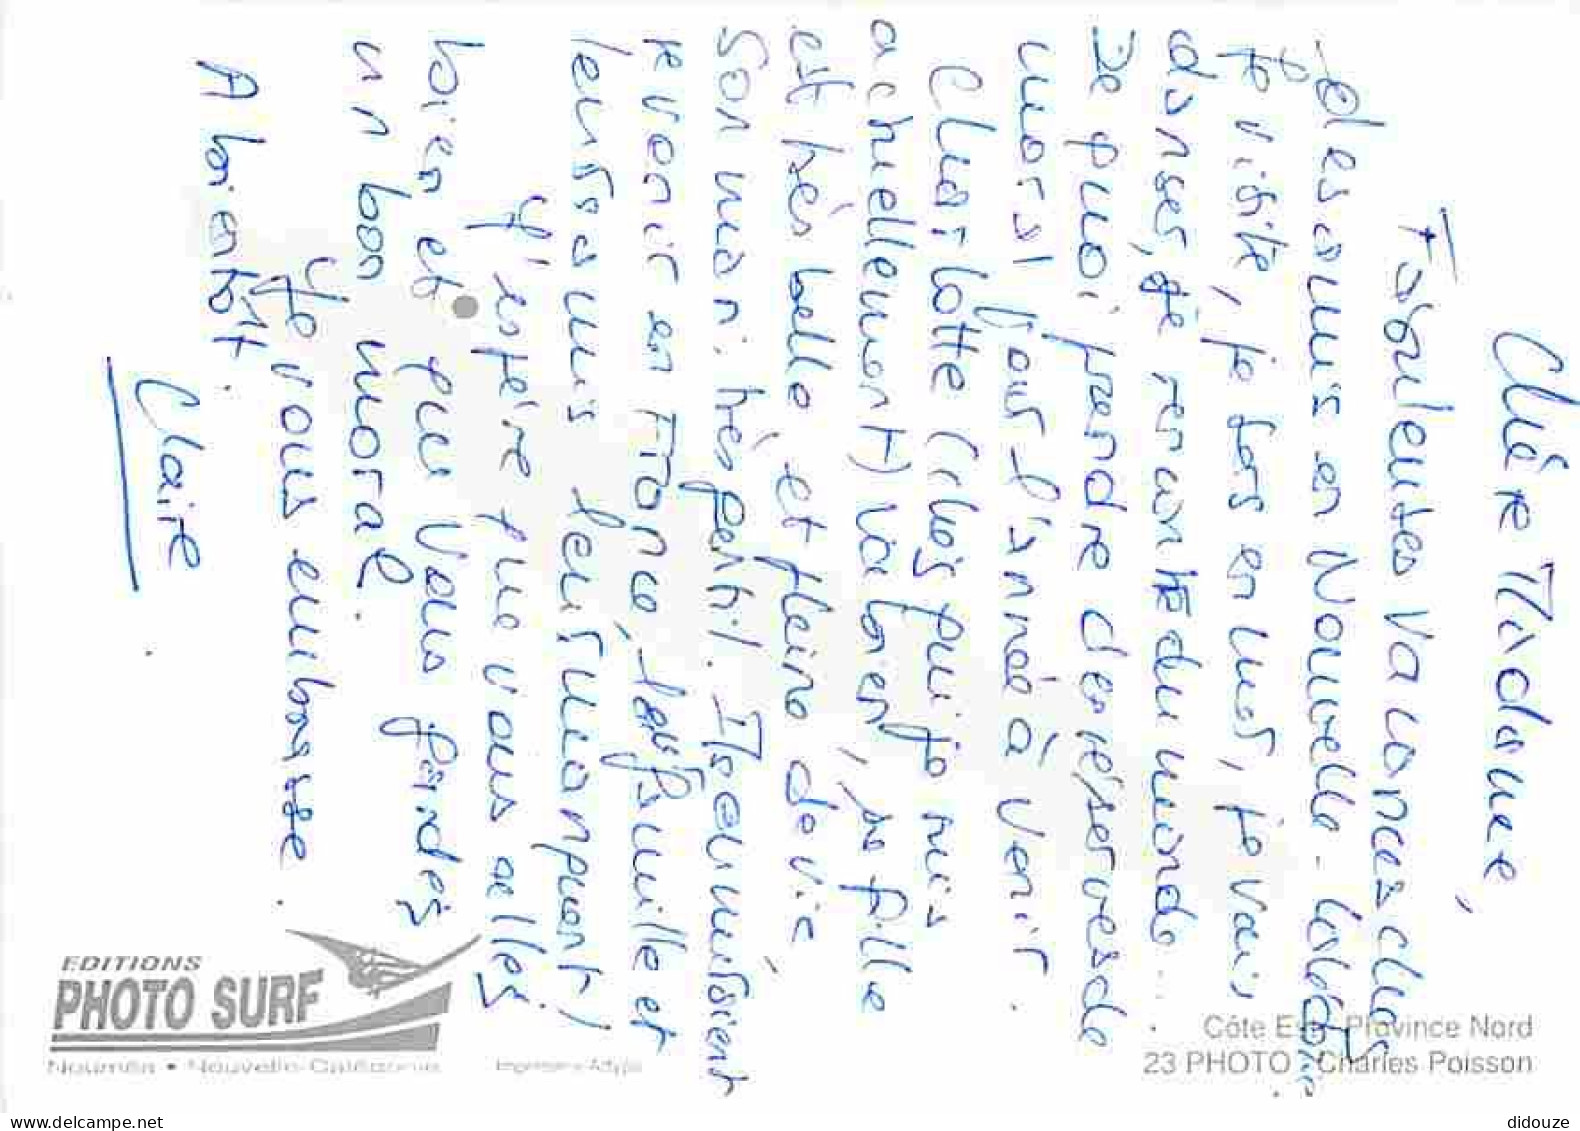 Chère Madame,
Fabuleuses vacances chez
des amis en Nouvelle-Calédonie.
Je visite, je fais en mer, je vais
danser, je rencontre du monde...
De quoi prendre des réserves de
moral pour l'année à venir.
Charlotte (chez qui je suis
actuellement) va bien, sa fille
est très belle, et pleine de vie
Son mari : très gentil. Ils aimeraient
revenir en France, la famille et
leurs amis leur manquent !
J'espère que vous allez
bien et que vous gardez
un bon moral.
Je vous embrasse.
A bientôt.
Claire
EDITIONS
PHOTO SURF
Nouméa • Nouvelle-Calédonie
Côte Est - Province Nord
23 PHOTO : Charles Poisson
www.delcampe.net
didouze